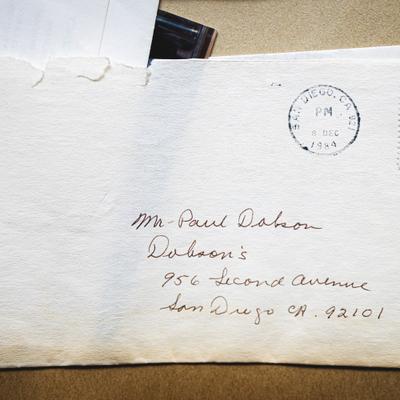 SAN DIEGO, CA 921
PM
8 DEC
1984
Mr. Paul Dobson
Dobson's
956 Second Avenue
San Diego CA. 92101